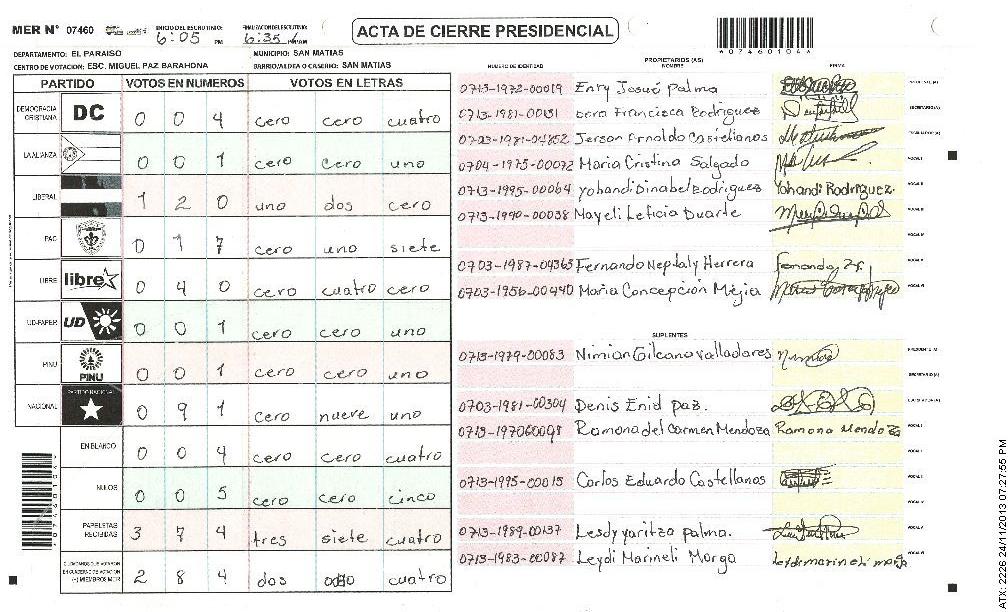 MER Nº 07460 INICIO DEL ESCRUTINIO: 6:05 PM FINALIZACION DEL ESCRUTINIO: 6:35 PM/AM ACTA DE CIERRE PRESIDENCIAL
*07460104*
DEPARTAMENTO: EL PARAISO MUNICIPIO: SAN MATIAS
CENTRO DE VOTACION: ESC. MIGUEL PAZ BARAHONA BARRIO/ALDEA O CASERIO: SAN MATIAS
PARTIDO VOTOS EN NUMEROS VOTOS EN LETRAS
DEMOCRACIA CRISTIANA DC 0 0 4 cero cero cuatro
LA ALIANZA 0 0 1 cero cero uno
LIBERAL 1 2 0 uno dos cero
PAC 0 1 7 cero uno siete
LIBRE libre 0 4 0 cero cuatro cero
UD-FAPER UD 0 0 1 cero cero uno
PINU PINU 0 0 1 cero cero uno
NACIONAL PARTIDO NACIONAL 0 9 1 cero nueve uno
EN BLANCO 0 0 4 cero cero cuatro
NULOS 0 0 5 cero cero cinco
PAPELETAS RECIBIDAS 3 7 4 tres siete cuatro
CIUDADANOS QUE VOTARON EN CUADERNO DE VOTACION (+) MIEMBROS MER 2 8 4 dos ocho cuatro
PROPIETARIOS (AS)
NUMERO DE IDENTIDAD NOMBRE FIRMA
0713-1972-00019 Enry Josué Palma
0713-1981-00131 Francisca Rodriguez
0703-1981-04852 Jerson Arnoldo Castellanos
0704-1975-00072 Maria Cristina Salgado VOCAL I
0713-1995-00064 yohandi Dinabel Rodriguez Yohandi Rodriguez. VOCAL II
0713-1990-00038 Mayeli Leticia Duarte VOCAL III
VOCAL IV
0703-1987-04363 Fernando Neptaly Herrera VOCAL V
0703-1956-00440 Maria Concepción Mejia VOCAL VI
SUPLENTES
0713-1979-00083 Nimian Gilceano Valladares
SECRETARIO (A)
0703-1981-00304 Denis Enid paz.
0713-197060098 Ramona del Carmen Mendoza Ramona Mendoza VOCAL I
0713-1995-00015 Carlos Eduardo Castellanos
0713-1989-00137 Lesdy yaritza palma.
0713-1983-00087 Leydi Marineli Morga leydi marineli morga
ATX: 2226 24/11/2013 07:27:55 PM